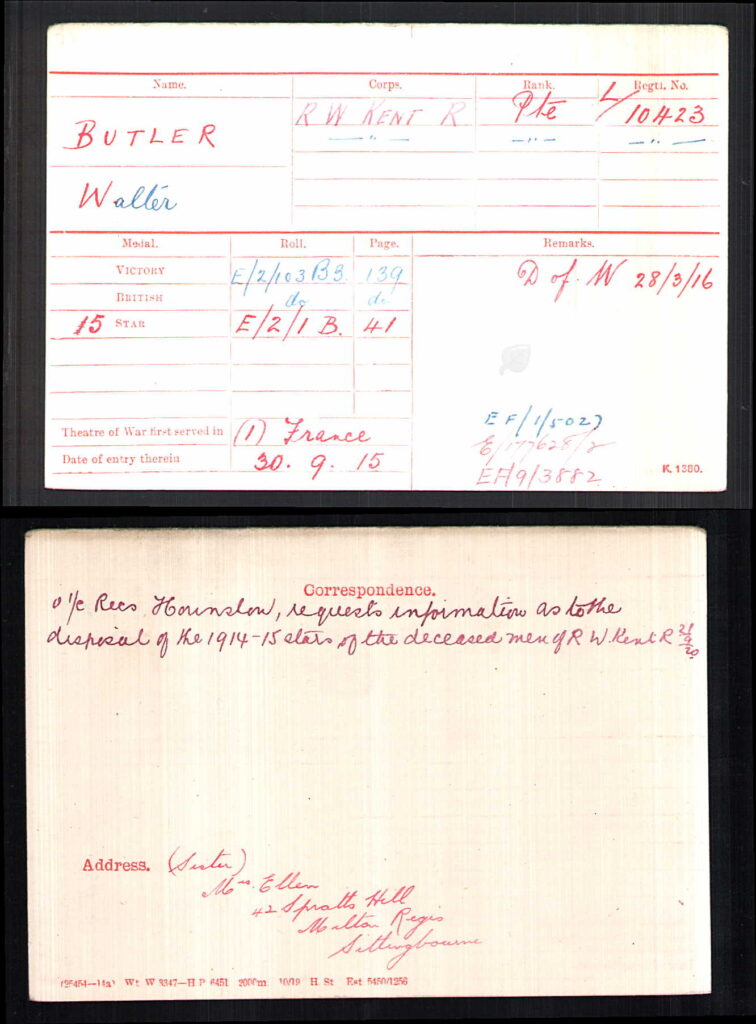 Name. Corps. Rank. Regtl. No.
BUTLER R W KENT R Pte L/10423
— " — — " — — " —
Walter
Medal. Roll. Page. Remarks.
VICTORY E/2/103 B3. 139 D of W 28/3/16
BRITISH do do
15 STAR E/2/1 B. 41
EF/1/5027
Theatre of War first served in (1) France E/177628/2
Date of entry therein 30. 9. 15 EF/9/3882
K. 1380.
Correspondence.
O i/c Recs Hounslow, requests information as to the
disposal of the 1914-15 stars of the deceased men of R W Kent R 21/9/20
Address. (Sister)
Mrs. Ellen
42 Spratts Hill
Milton Regis
Sittingbourne
(25454—14a) Wt W 3347—H P 6451 2000m 10/19 H. St Est 5450/1256